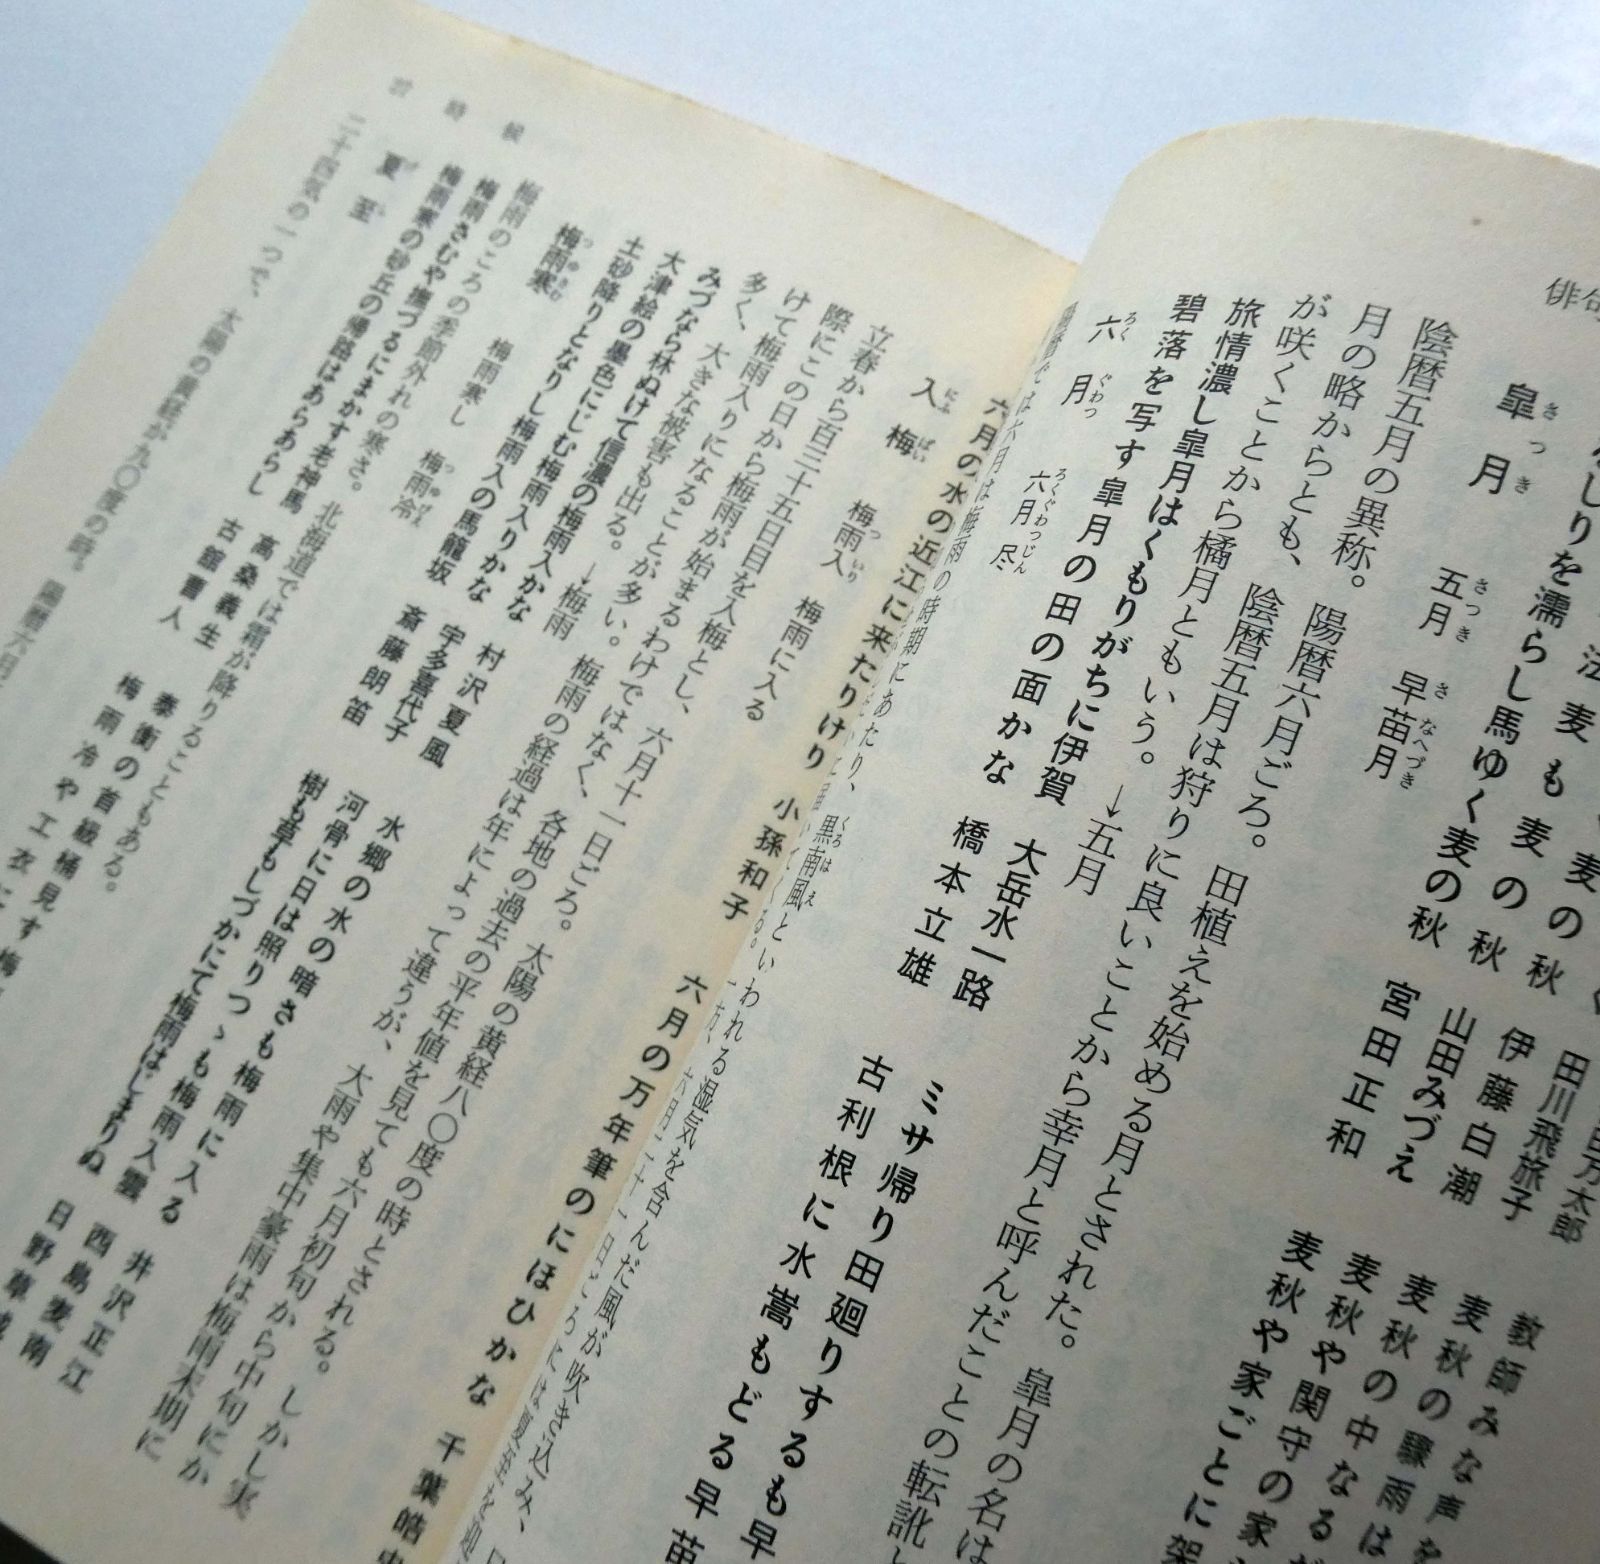 俳句
しりを濡らし馬ゆく麦の秋 宮田正和
麦の秋 山田みづえ
麦も麦の秋 伊藤白潮
麦の秋 田川飛旅子
万太郎
教師みな声を
麦秋の驟雨は
麦秋の中なるが
麦秋や関守の家
麦秋や家ごとに架
皐月 さつき 五月 さつき 早苗月 さなへづき
陰暦五月の異称。陽暦六月ごろ。田植えを始める月とされた。皐月の名は
月の略からとも、陰暦五月は狩りに良いことから幸月と呼んだことの転訛と
が咲くことから橘月ともいう。→五月
旅情濃し皐月はくもりがちに伊賀 大岳水一路
碧落を写す皐月の田の面かな 橋本立雄
ミサ帰り田廻りするも早
古利根に水嵩もどる早苗
六月 ろくぐわつ 六月尽 ろくぐわつじん
は六月は梅雨の時期にあたり、黒南風 くろはえ といわれる湿気を含んだ風が吹き込み、
六月の水の近江に来たりけり 小孫和子
六月の万年筆のにほひかな 千葉皓史
入梅 にふばい 梅雨入 つゆいり 梅雨に入る
立春から百三十五日目を入梅とし、六月十一日ごろ。太陽の黄経八〇度の時とされる。しかし実
際にこの日から梅雨が始まるわけではなく、各地の過去の平年値を見ても六月初旬から中旬にか
けて梅雨入りになることが多い。梅雨の経過は年によって違うが、大雨や集中豪雨は梅雨末期に
多く、大きな被害も出る。→梅雨
みづなら林ぬけて信濃の梅雨入かな 村沢夏風
大津絵の墨色にじむ梅雨入りかな 宇多喜代子
土砂降りとなりし梅雨入の馬籠坂 斎藤朗笛
水郷の水の暗さも梅雨に入る 井沢正江
河骨に日は照りつゝも梅雨入雲 西島麦南
樹も草もしづかにて梅雨はじまりぬ 日野草城
梅雨寒 つゆさむ 梅雨寒し 梅雨冷 つゆびえ
梅雨のころの季節外れの寒さ。北海道では霜が降りることもある。
梅雨さむや撫づるにまかす老神馬 高桑義生
梅雨寒の砂丘の帰路はあらあらし 古舘曹人
泰衡の首級桶見す梅
梅雨冷や工衣に
夏至 げし
二十四気の一つで、太陽の黄経が九〇度の時。陽暦六月
時候